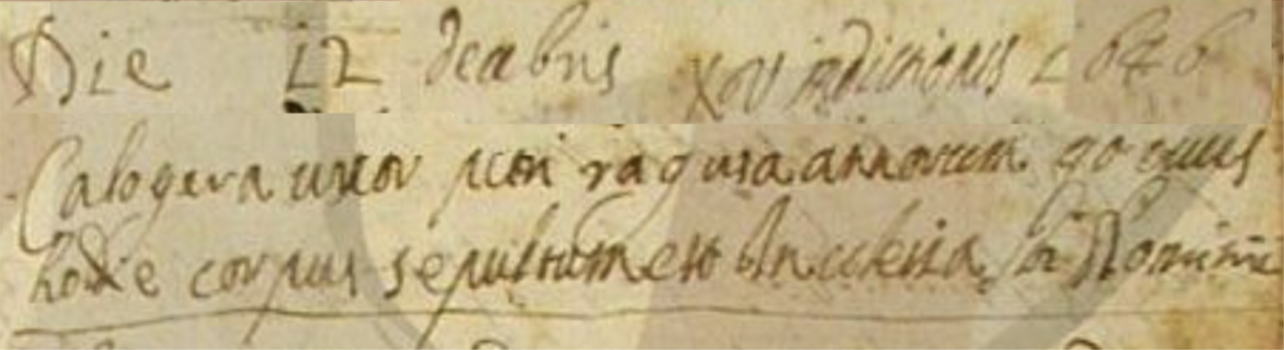 Die 12 decebris XV indicionis 1646
Calogera uxor petri ragusa annorum 90 cuius
hodie corpus sepultum est In ecclesia Sti Dominici